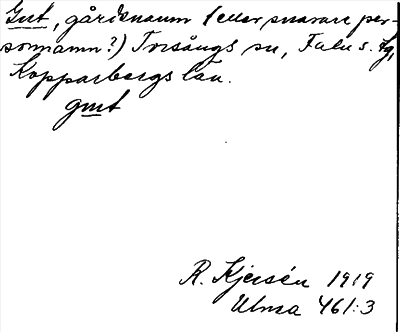 Gut, gårdsnamn (eller snarare per-
sonnamn?) Torsångs sn, Falu s. fg,
Kopparbergs län.
gut
R. Kjersén 1919
Ulma 461:3